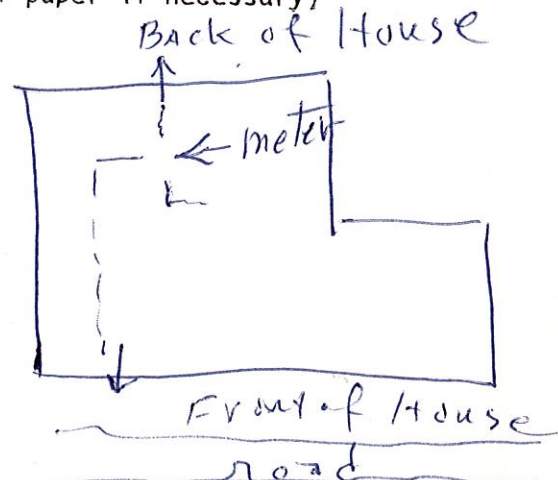 paper if necessary)
Back of House
← meter
Front of House
road